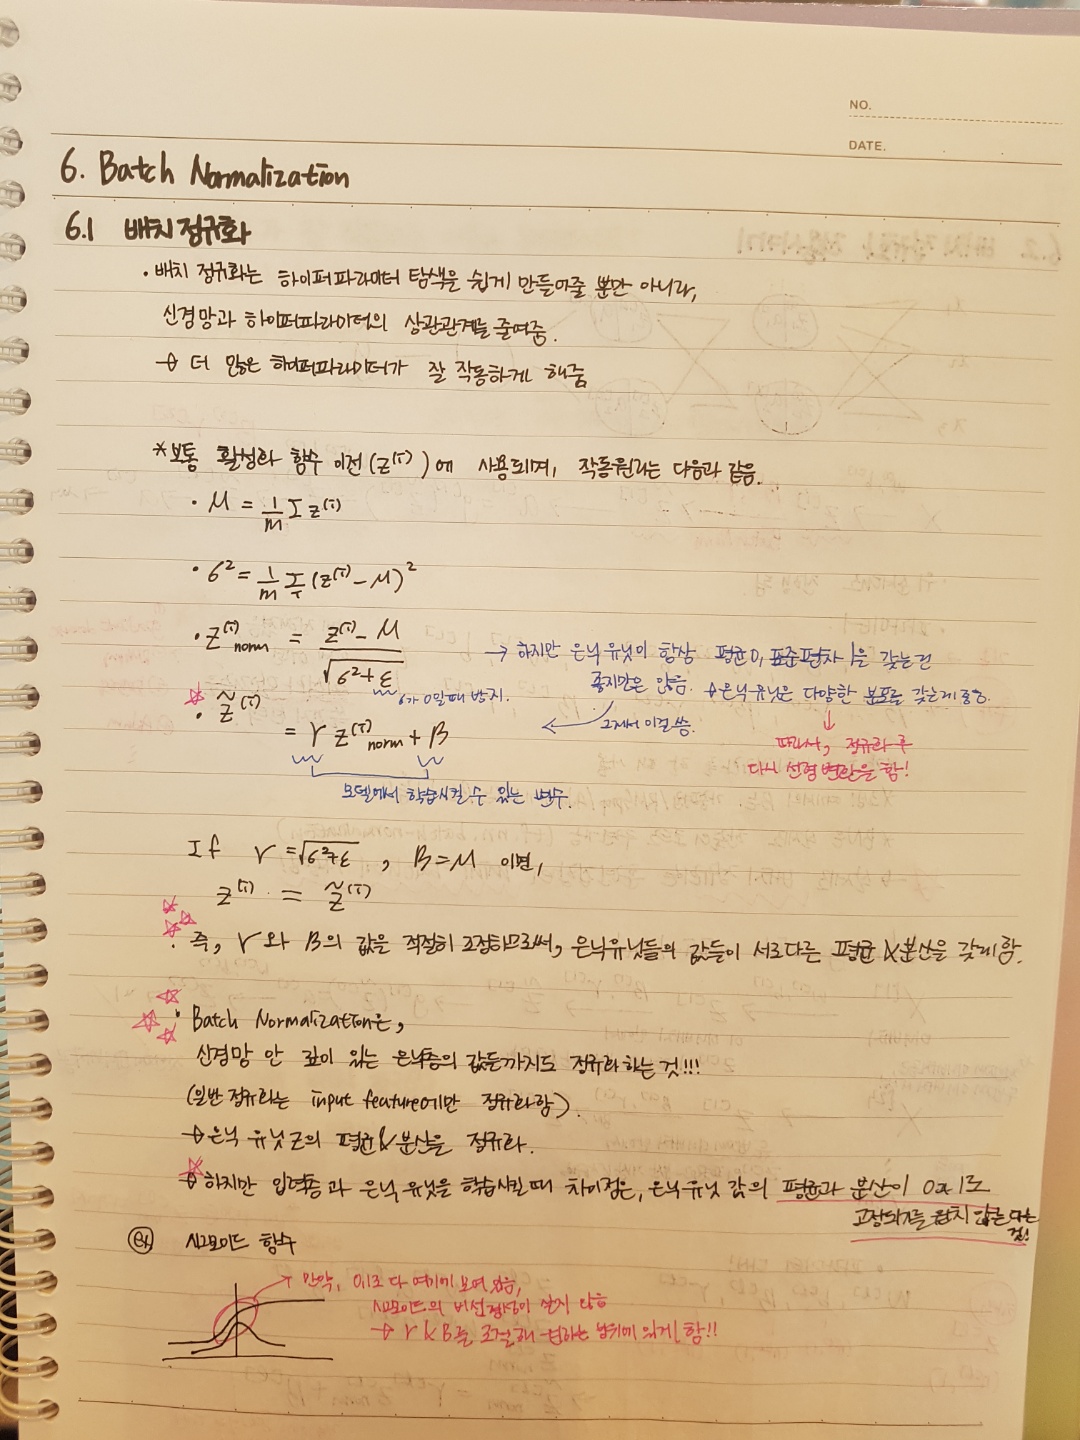 NO.
DATE.
6. Batch Normalization
6.1 배치 정규화
· 배치 정규화는 하이퍼파라미터 탐색을 쉽게 만들어줄 뿐만 아니라,
신경망과 하이퍼파라미터의 상관관계를 줄여줌.
→ 더 많은 하이퍼파라미터가 잘 작동하게 해줌
*보통 활성화 함수 이전(z⁽ⁱ⁾)에 사용되며, 작동원리는 다음과 같음.
· μ = 1/m Σ z⁽ⁱ⁾
· σ² = 1/m Σᵢ (z⁽ⁱ⁾ - μ)²
· z⁽ⁱ⁾norm = (z⁽ⁱ⁾ - μ) / √(σ² + ε)
σ가 0일때 방지.
→ 하지만 은닉 유닛이 항상 평균 0, 표준편차 1을 갖는건
좋지만은 않음. → 은닉유닛은 다양한 분포를 갖는게 좋음.
그래서 이걸 씀.
↓
따라서, 정규화 후
다시 선형 변환을 함!
☆ · z̃⁽ⁱ⁾
= γ z⁽ⁱ⁾norm + β
모델에서 학습시킬 수 있는 변수.
If γ = √(σ²+ε), β = μ 이면,
z⁽ⁱ⁾ = z̃⁽ⁱ⁾
· 즉, γ와 β의 값을 적절히 조정하므로써, 은닉유닛들의 값들이 서로다른 평균 & 분산을 갖게함.
· Batch Normalization은,
신경망 안 깊이 있는 은닉층의 값들까지도 정규화하는 것!!!
(일반 정규화는 input feature에만 정규화함).
→ 은닉 유닛 z의 평균 & 분산을 정규화.
→ 하지만 입력층과 은닉 유닛을 학습시킬 때 차이점은, 은닉유닛 값의 평균과 분산이 0과 1로
고정되기를 원치 않는 다는
것!
예) 시그모이드 함수
→ 만약, 이로 다 여기에 모여 있음,
시그모이드의 비선형성이 살지 않음
→ γ & β를 조절해 원하는 범위에 있게 함!!